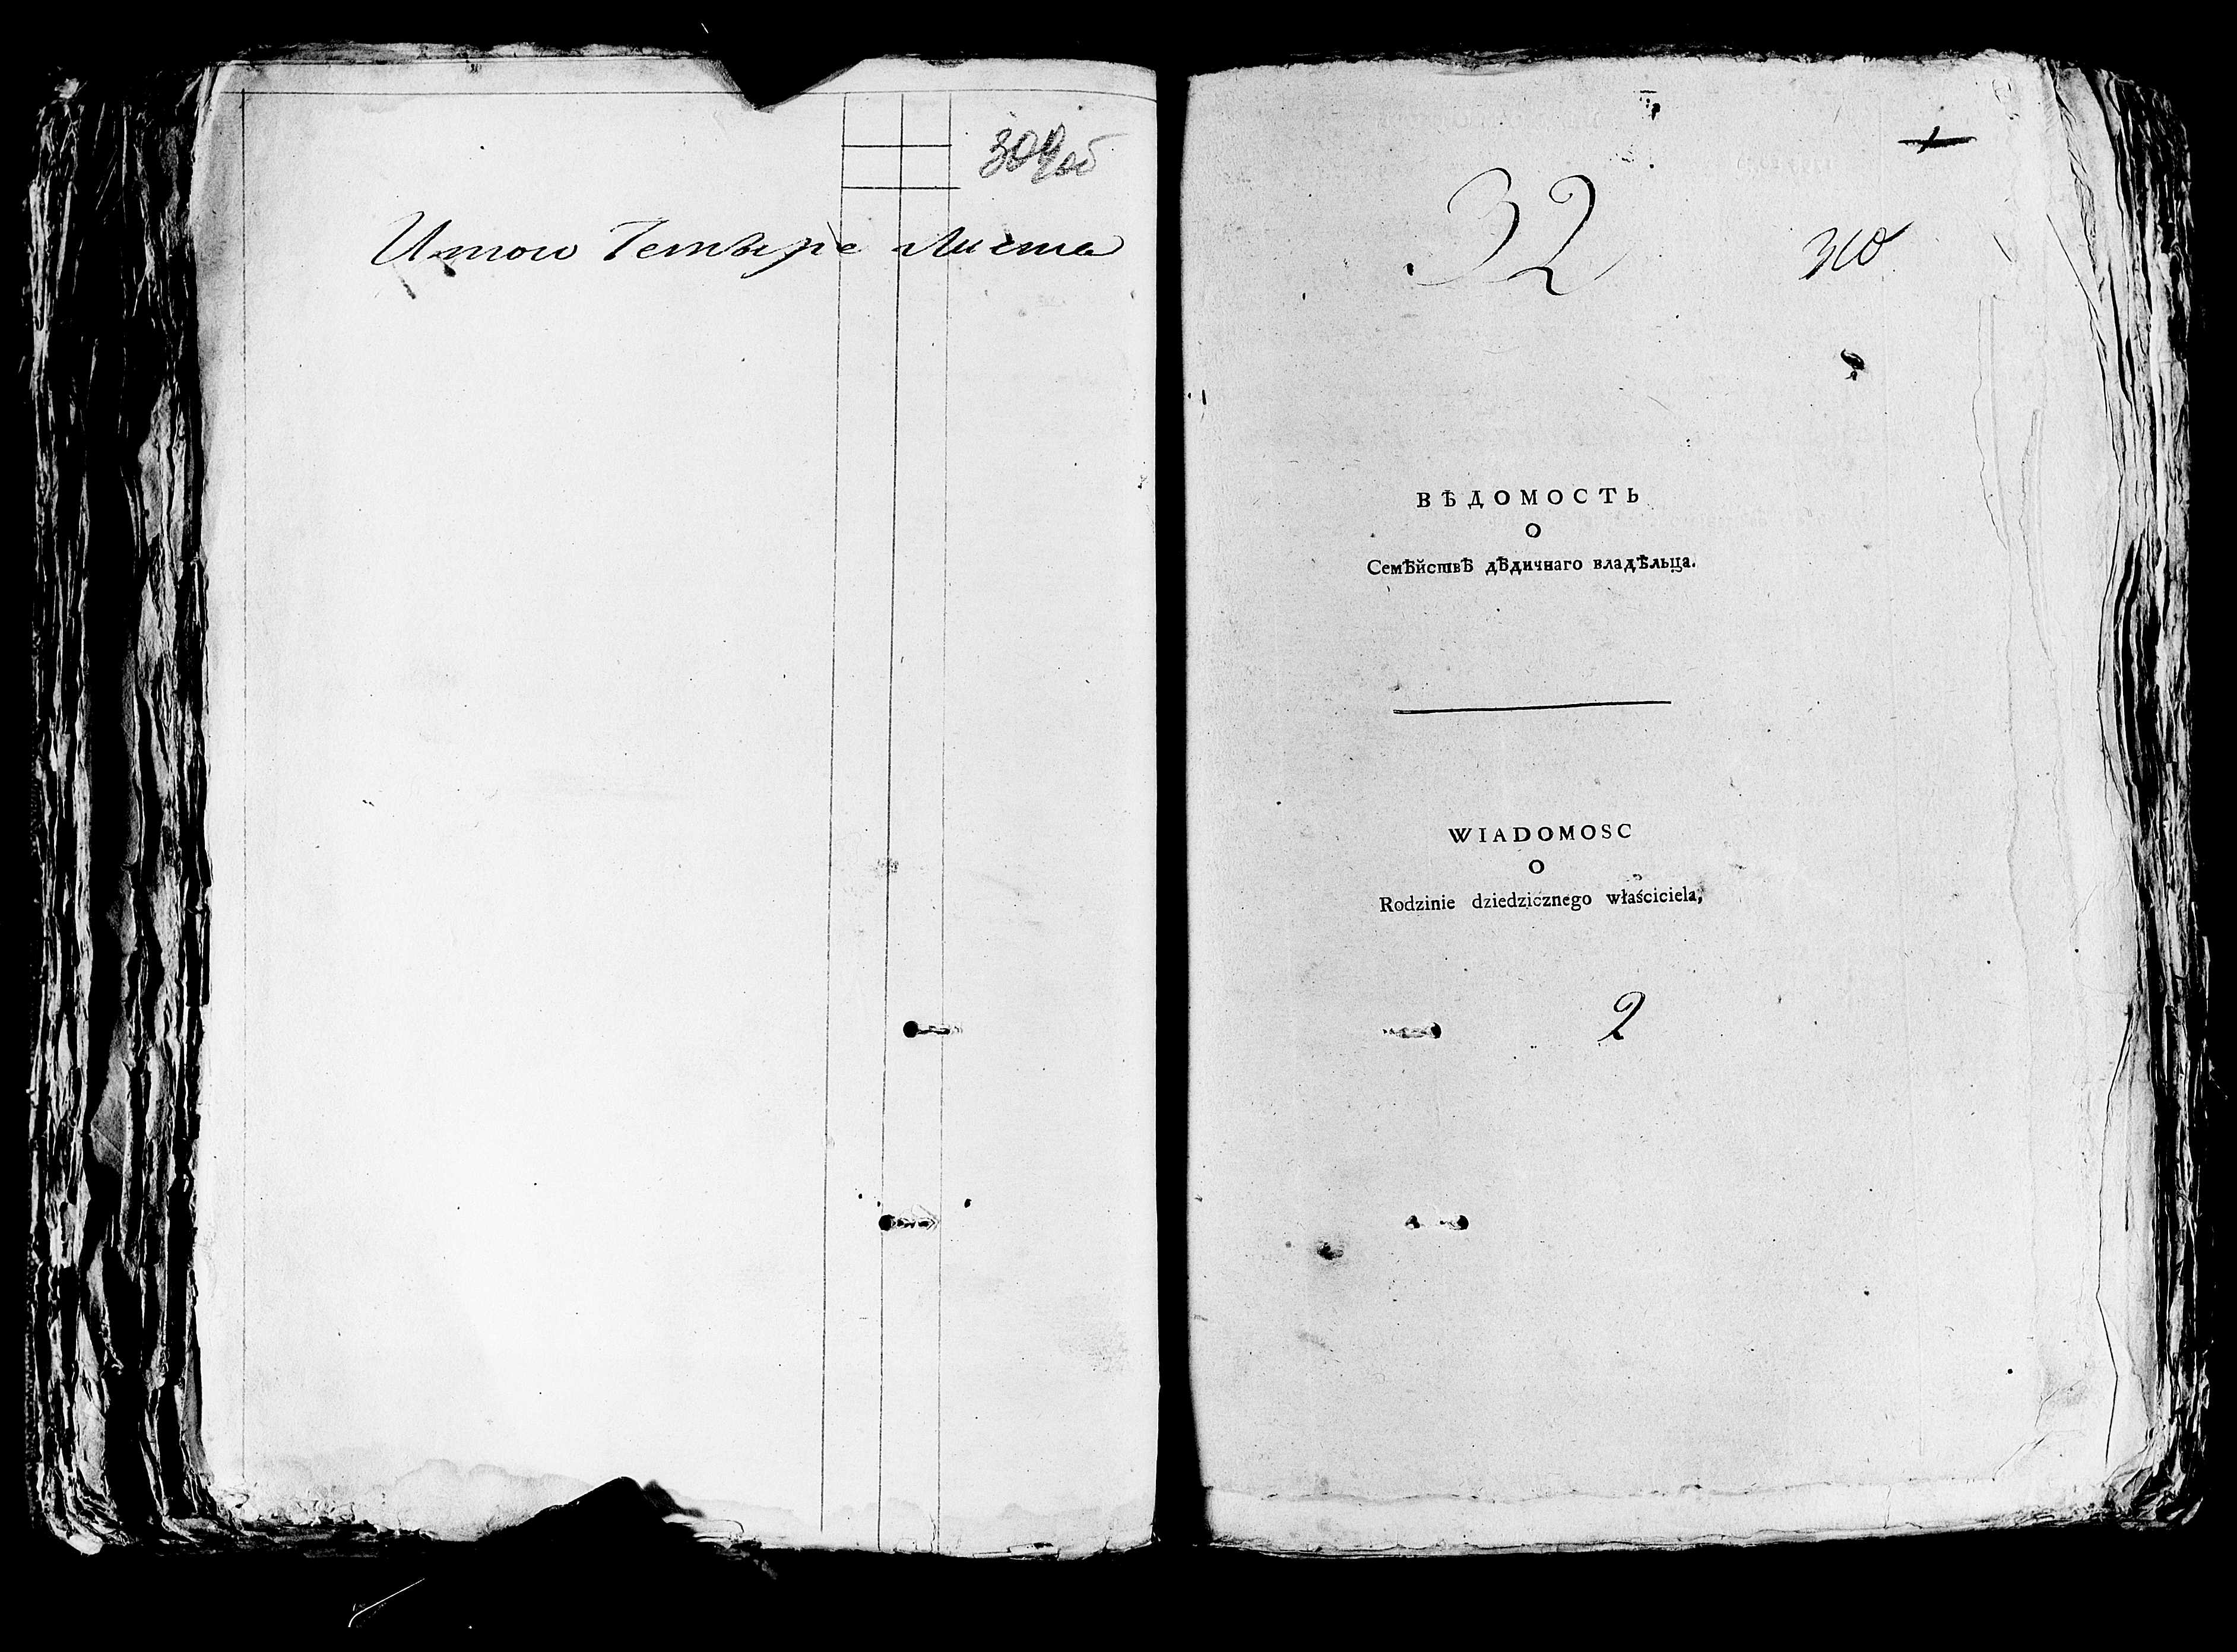 309об
Итого Четыре Листа
1
32
310
ВѢДОМОСТЬ
О
Семѣйствѣ дѣдичнаго владѣльца.
WIADOMOSC
O
Rodzinie dziedzicznego właściciela,
2